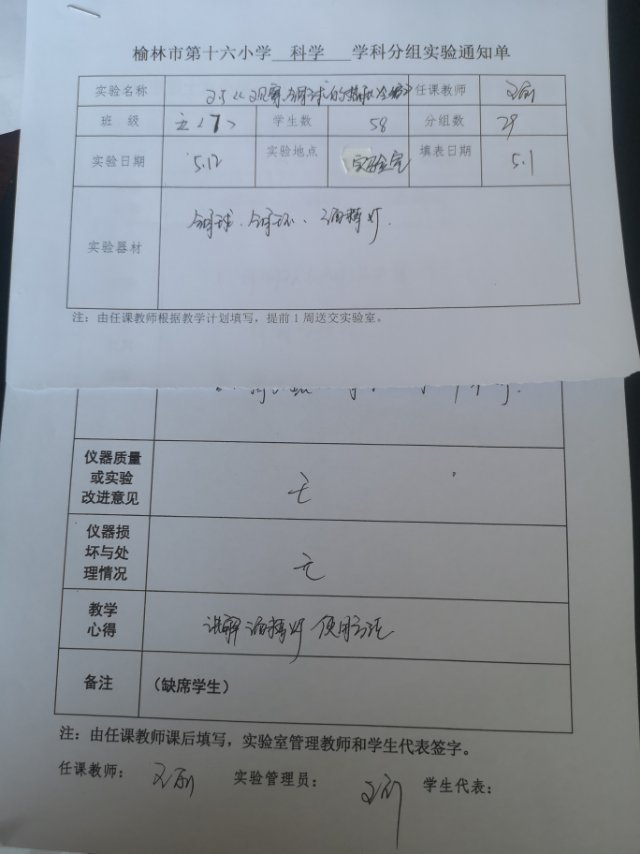 榆林市第十六小学 科学 学科分组实验通知单
实验名称 观察 钢球的热胀冷缩 任课教师
班 级 五〈7〉 学生数 58 分组数 29
实验日期 5.12 实验地点 实验室 填表日期 5.1
实验器材 钢球、钢环、酒精灯.
注：由任课教师根据教学计划填写，提前1周送交实验室。
仪器质量
或实验
改进意见 无
仪器损
坏与处
理情况 无
教学
心得 讲解酒精灯使用方法
备注 （缺席学生）
注：由任课教师课后填写，实验室管理教师和学生代表签字。
任课教师： 实验管理员： 学生代表：